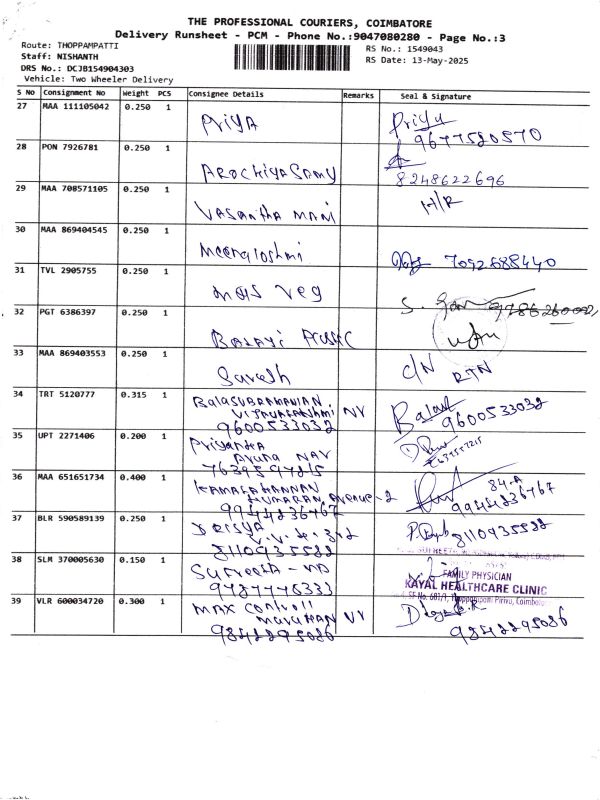 THE PROFESSIONAL COURIERS, COIMBATORE
Delivery Runsheet - PCM - Phone No.:9047080280 - Page No.:3
Route: THOPPAMPATTI
RS No.: 1549043
Staff: NISHANTH
RS Date: 13-May-2025
DRS No.: DCJB154904303
Vehicle: Two Wheeler Delivery
S No Consignment No Weight PCS Consignee Details Remarks Seal & Signature
27 MAA 111105042 0.250 1 Priya Priya
9677520570
28 PON 7926781 0.250 1 Arockiyasamy
8248622696
29 MAA 708571105 0.250 1 Vasantha mani H/R
30 MAA 869404545 0.250 1 7092688440
31 TVL 2905755 0.250 1 veg
32 PGT 6386397 0.250 1 Balaji
33 MAA 869403553 0.250 1 Suresh C/N RTN
34 TRT 5120777 0.315 1 Balasubramanian NY Balan
9600533032 9600533032
35 UPT 2271406 0.200 1 Priyanka
36 MAA 651651734 0.400 1 Kamalakannan 84-A
Kumaran Avenue-2
9944236767 9944236767
37 BLR 590589139 0.250 1
8110935522 8110935522
38 SLM 370005630 0.150 1 Supreetha
9787776333
FAMILY PHYSICIAN
KAYAL HEALTHCARE CLINIC
39 VLR 600034720 0.300 1 max controll
9842295086 9842295086